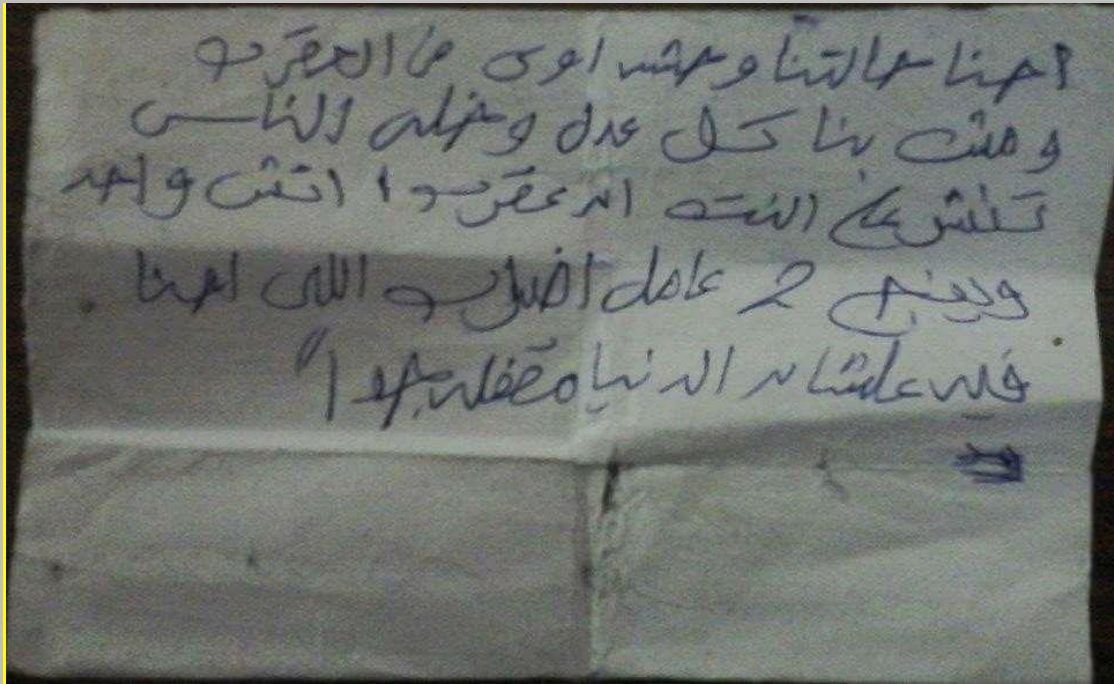 احنا حالتنا وحشه اوى فى العقرب
و مش بنا كل عدل و خلى الناس
تنش على النت ان عقرب ١ اتش واحد
وينج 2 عامل اضراب اللى احنا
فيه علشان الدنيا مقفله جدا"